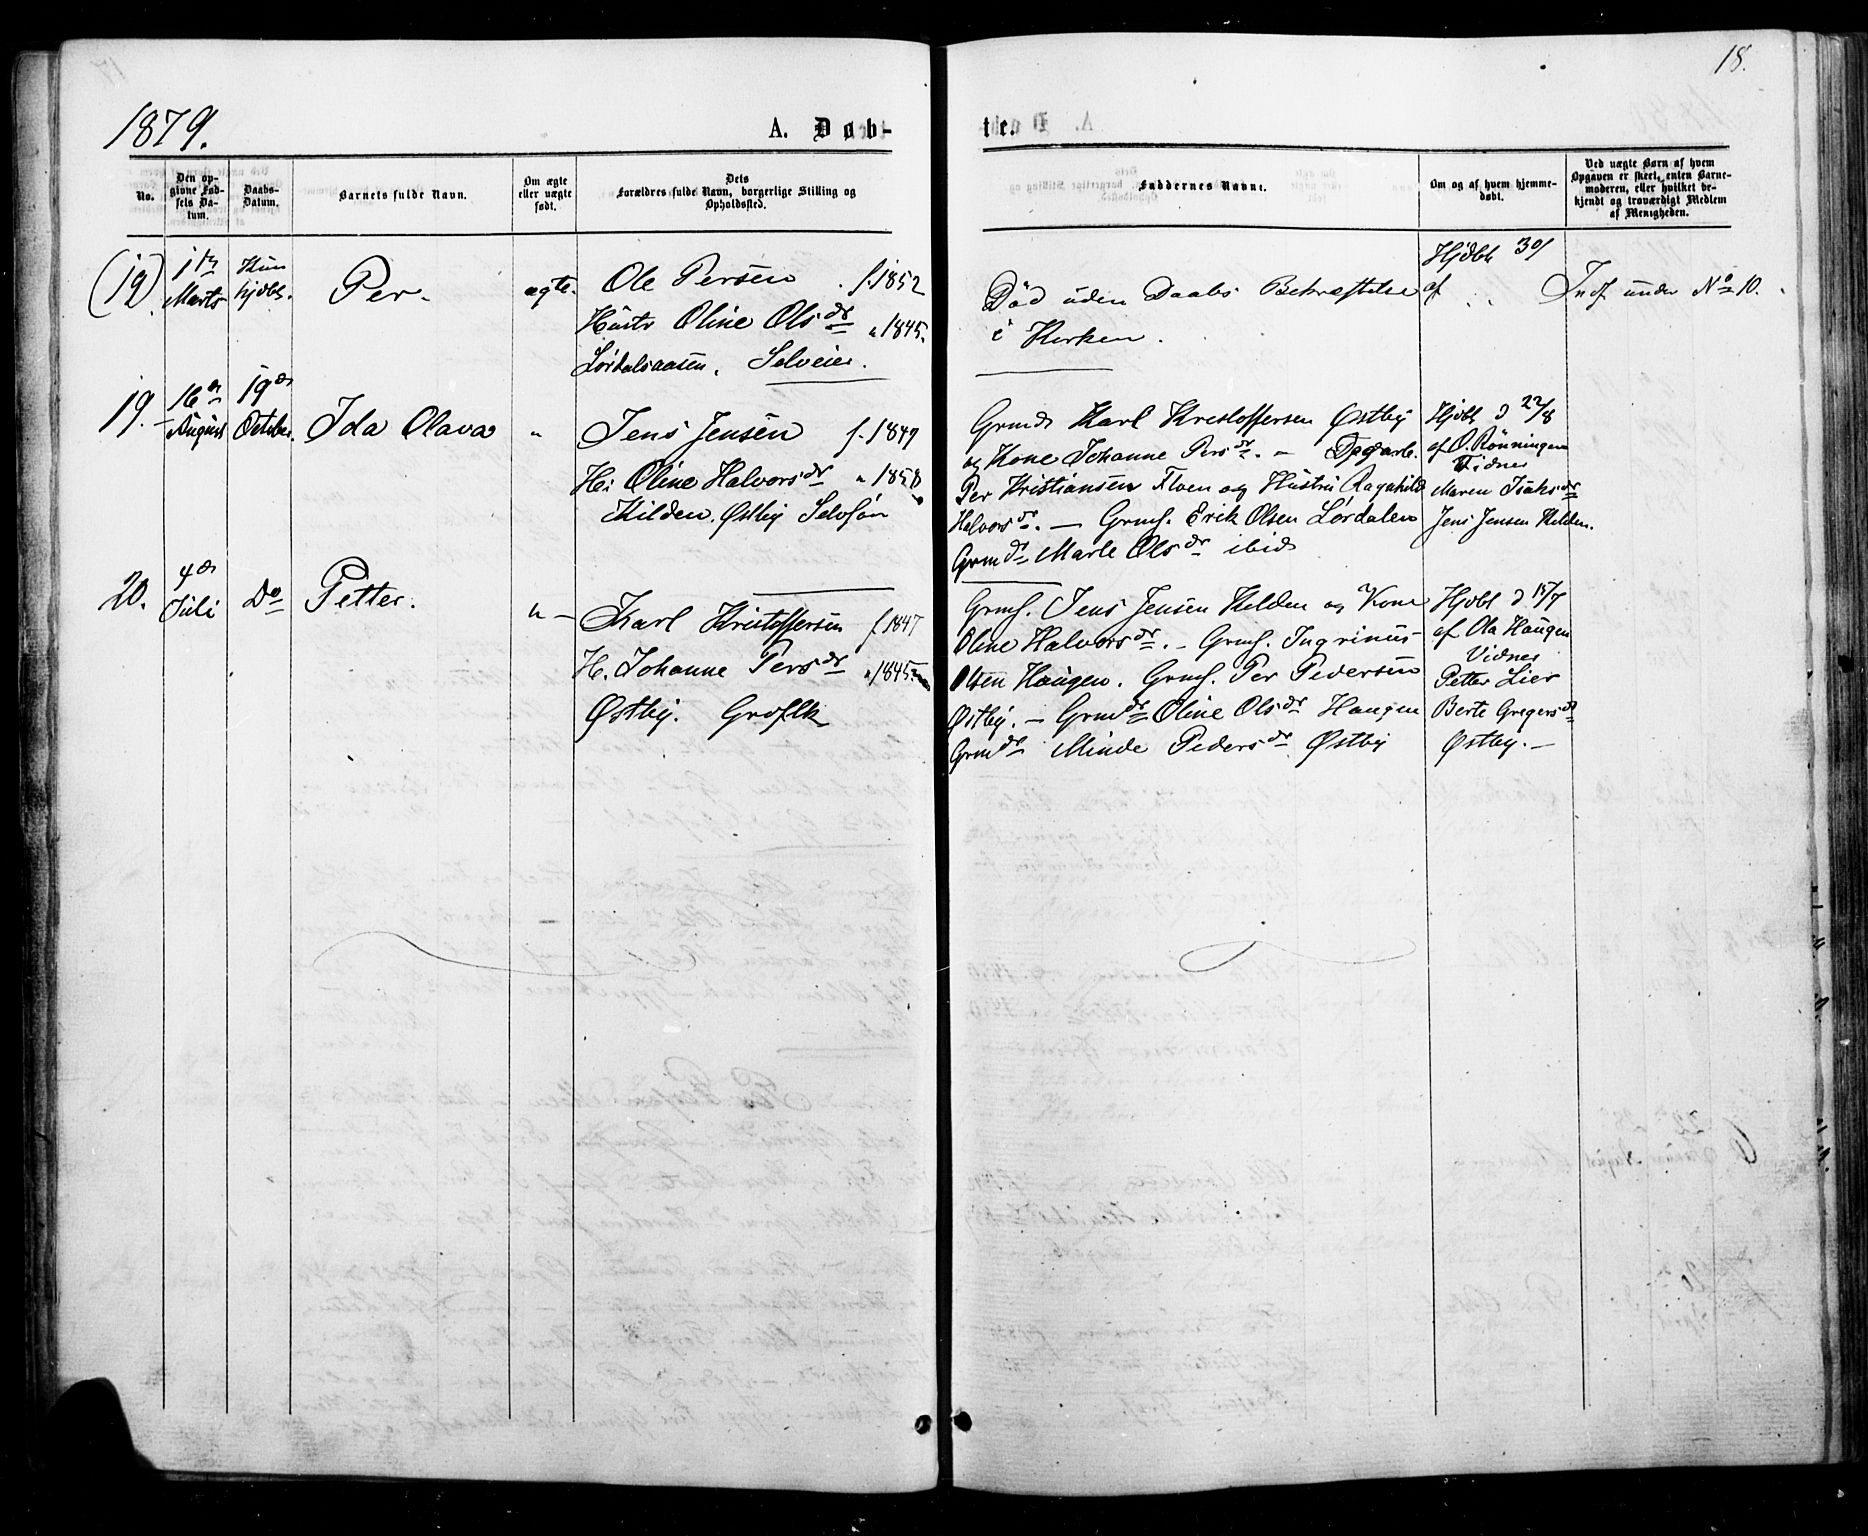 18.
1879.
A. Døb-
te.
No.
Den op-
givne Fød-
sels Da-
tum.
Daabs-
Datum.
Barnets fulde Navn.
Om ægte
eller uægte
født.
Dets
Forældres fulde Navn, borgerlige Stilling og
Opholdssted.
Faddernes Navne.
Om og af hvem hjemme-
døbt.
Ved uægte Børn af hvem
Opgaven er skeet, enten Barne-
moderen, eller hvilket be-
kjendt og troværdigt Medlem
af Menigheden.
(19)
1ste
Marts
Kun
hjdbt.
Per.
ægte.
Ole Persen . f. 1852
Hustr Oline Olsdr " 1845.
Lørdalsaasen. Selveier.
Død uden Daabs Bekræftelse
i Kirken.
Hjdbt 30/
af " "
Indf under No 10.
19.
16de
August
19de
October
Ida Olava
"
Jens Jensen f. 1849
H: Oline Halvorsdr " 1858
Kilden. Østby
Grmd Karl Kristoffersen Østby
og Kone Johanne Persdr. –
Per Kristiansen Floen og Hustru Ragnhild
Halvorsdr. – Grmf. Erik Olsen Lørdalen
Grmdr Marte Olsdr ibid
Hjdbt d 22/8
af O. Rønningen
Vidner
Maren Isaksdr
Jens Jensen Kilden.
20.
4de
Juli
Do
Petter.
"
Karl Kristoffersen f. 1847
H. Johanne Persdr " 1845
Østby.
Grmf. Jens Jensen Kilden og Kone
Oline Halvorsdr. – Grmf. Ingrinus
Olsen Haugen. Grmf. Per Pedersen
Østby. – Grmdr Oline Olsdr Haugen
Grmdr Minde Pedersdr Østby
Hjdbt d 15/7
af Ola Haugen
Vidner
Petter Lier
Berte Gregersdr
Østby. –